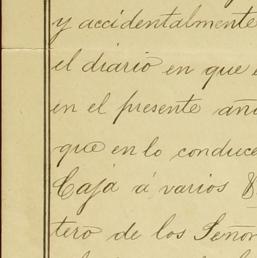 y accidentalmente
el diario en que
en el presente
que en lo conduce
Caja á varios
tero de los Señor